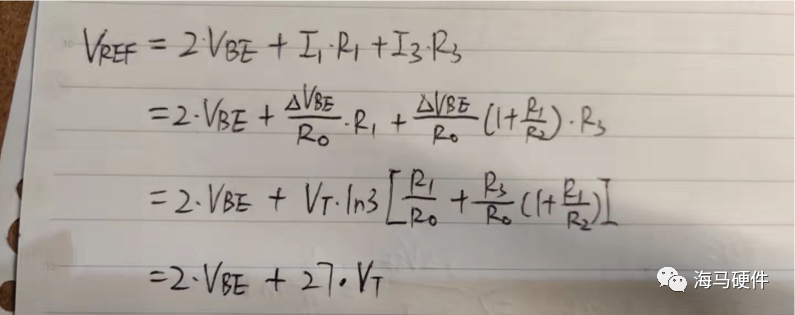 V_REF = 2·V_BE + I₁·R₁ + I₃·R₃
= 2·V_BE + ΔV_BE/R₀ ·R₁ + ΔV_BE/R₀ (1+R₁/R₂)·R₃
= 2·V_BE + V_T·ln3 [R₁/R₀ + R₃/R₀ (1+R₁/R₂)]
= 2·V_BE + 27·V_T
海马硬件